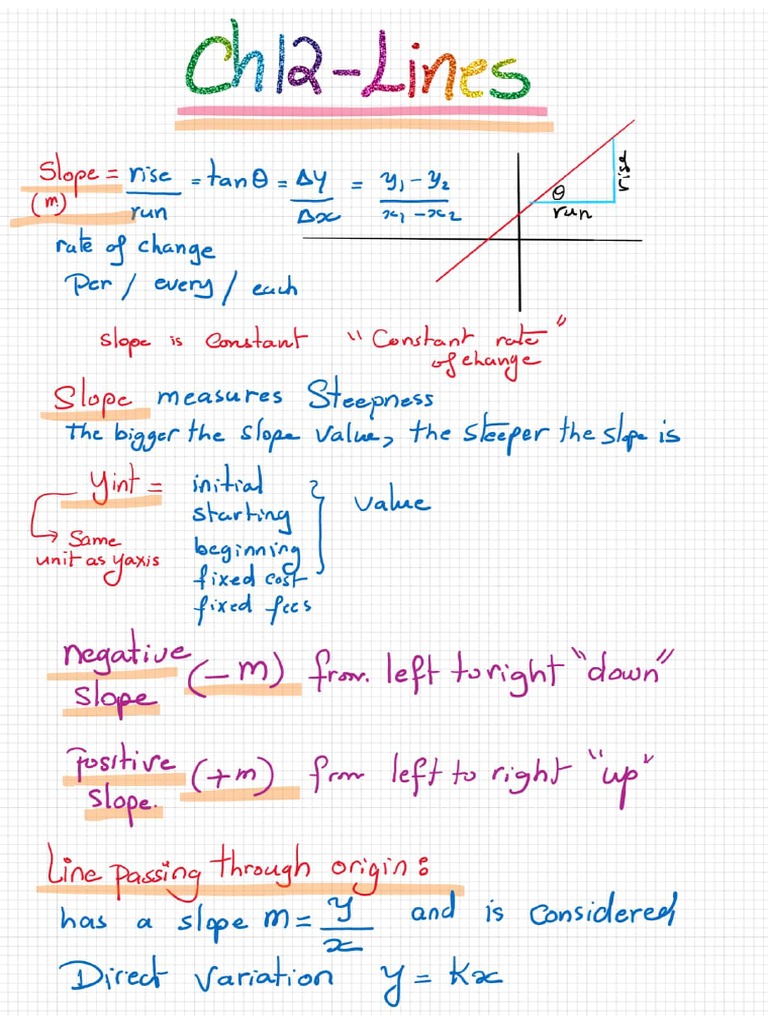 Ch12-Lines
Slope = rise/run = tanθ = Δy/Δx = y₁-y₂/x₁-x₂
(m)
rate of change
Per / every / each
θ
rise
run
slope is constant "Constant rate of change"
Slope measures Steepness
the bigger the slope value, the steeper the slope is
yint = initial
starting
beginning
fixed cost
fixed fees
value
Same
unit as yaxis
negative slope (-m) from left to right "down"
Positive slope. (+m) from left to right "up"
Line passing through origin:
has a slope m = y/x and is considered
Direct variation y = Kx